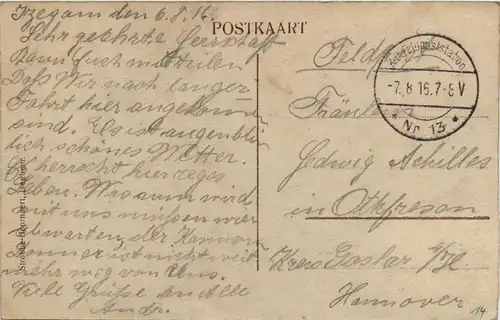 Izegem den 6.8.16.
POSTKAART
Sehr geehrte Herrschaft
Kann Euch mitteilen
Daß Wir nach langer
Fahrt hier angekommen
sind. Es ist augenblick
lich schönes Wetter.
Es herrscht hier reges
Leben. Was aum wird
mit uns müssen wir
abwarten, der Kannon
donner ist nicht weit
mehr weg von Uns.
Viele Grüße an Alle
Andr.
Feldpost
Nr. 13
-7.8 16.7-8 V
Fräulein
Hedwig Achilles
in Othfresen
Kreis Goslar a/H
Hannover
14